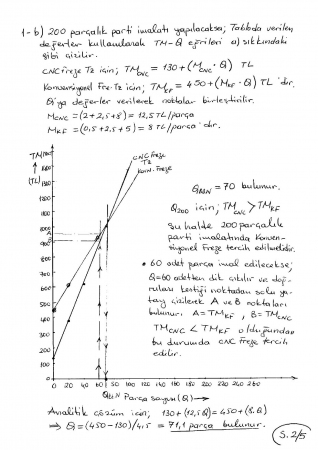 1-b) 200 parçalık parti imalatı yapılacaksa; Tabloda verilen
değerler kullanılarak TM-Q eğrileri a) şıkkındaki
gibi çizilir.
CNC Freze Tz için; TM_CNC = 130 + (M_CNC · Q) TL
Konvansiyonel Fre. Tz için; TM_KF = 450 + (M_KF · Q) TL 'dir.
Q'ya değerler verilerek noktalar birleştirilir.
M_CNC = (2+2,5+8) = 12,5 TL/parça
M_KF = (0,5+2,5+5) = 8 TL/parça'dır.
TM
(TL)
CNC Freze
Tz
Konv. Freze
Q_BAN = 70 bulunur.
Q_200 için; TM_CNC > TM_KF
Şu halde 200 parçalık
parti imalatında Konvan-
siyonel Freze tercih
edilmelidir.
• 60 adet parça imal edilecekse;
Q=60 adetten dik çıkılır ve doğ-
ruları kestiği noktadan sola ya-
tay çizilerek A ve B noktaları
bulunur. A = TM_KF, B = TM_CNC
TM_CNC < TM_KF olduğundan
bu durumda CNC Freze tercih
edilir.
0 20 40 60 80 100 120 140 160 180 200 220 240 260
Q_BAN Parça sayısı (Q)
Analitik çözüm için; 130 + (12,5Q) = 450 + (8.Q)
⇒ Q = (450-130)/4,5 = 71,1 parça bulunur.
S.2/5